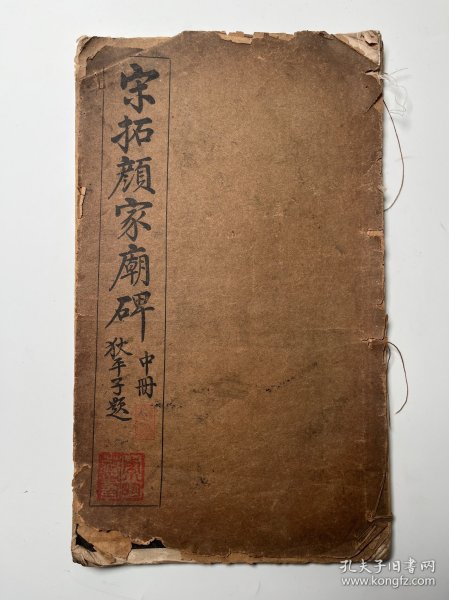 宗拓顏家廟碑
中冊
狄平子題
孔夫子旧书网
www.kongfz.com